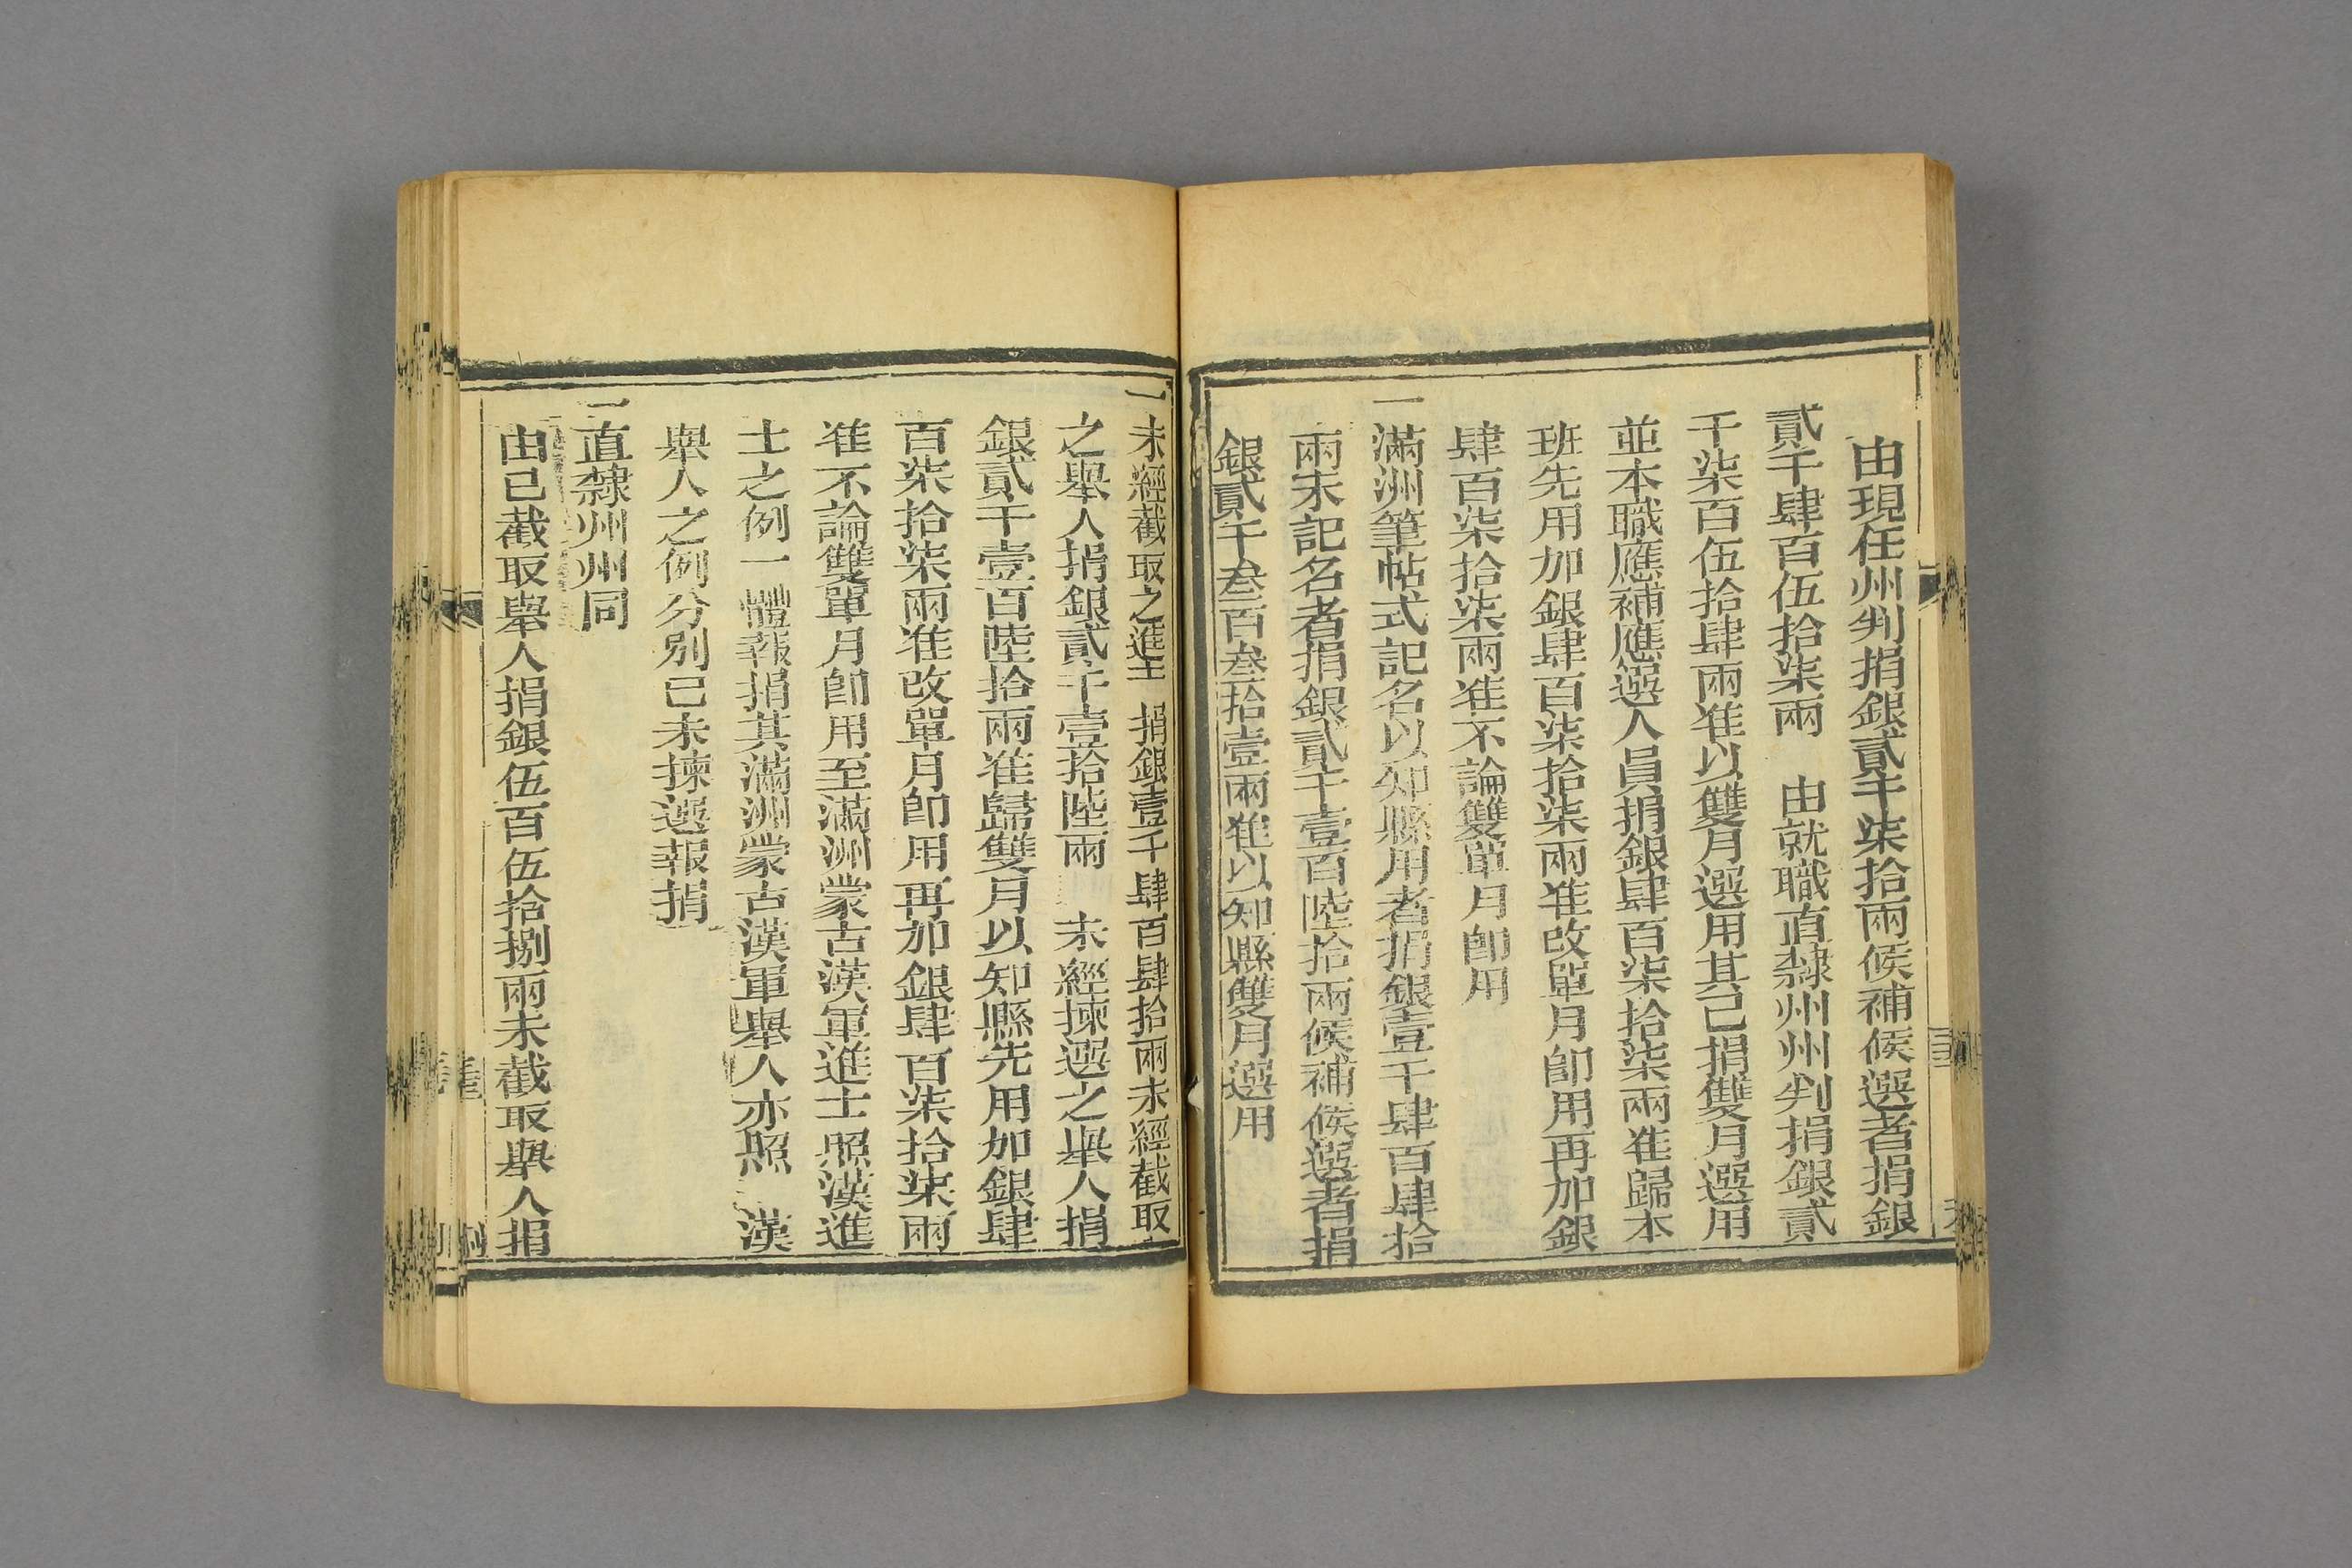 由現任州判捐銀貳千柒拾兩候補候選者捐銀
貳千肆百伍拾柒兩　由就職直隸州州判捐銀貳
千柒百伍拾肆兩准以雙月選用其已捐雙月選用
並本職應補應選人員捐銀肆百柒拾柒兩准歸本
班先用加銀肆百柒拾柒兩准改單月卽用再加銀
肆百柒拾柒兩准不論雙單月卽用
一滿洲筆帖式記名以知縣用者捐銀壹千肆百肆拾
兩未記名者捐銀貳千壹百陸拾兩候補候選者捐
銀貳千叁百叁拾壹兩准以知縣雙月選用
一未經截取之進士　捐銀壹千肆百肆拾兩未經截取
之舉人捐銀貳千壹拾陸兩　未經揀選之舉人捐
銀貳千壹百陸拾兩准歸雙月以知縣先用加銀肆
百柒拾柒兩准改單月卽用再加銀肆百柒拾柒兩
准不論雙單月卽用至滿洲蒙古漢軍進士照漢進
士之例一體報捐其滿洲蒙古漢軍舉人亦照　漢
舉人之例分別已未揀選報捐
一直隸州州同
由已截取舉人捐銀伍百伍拾捌兩未截取舉人捐